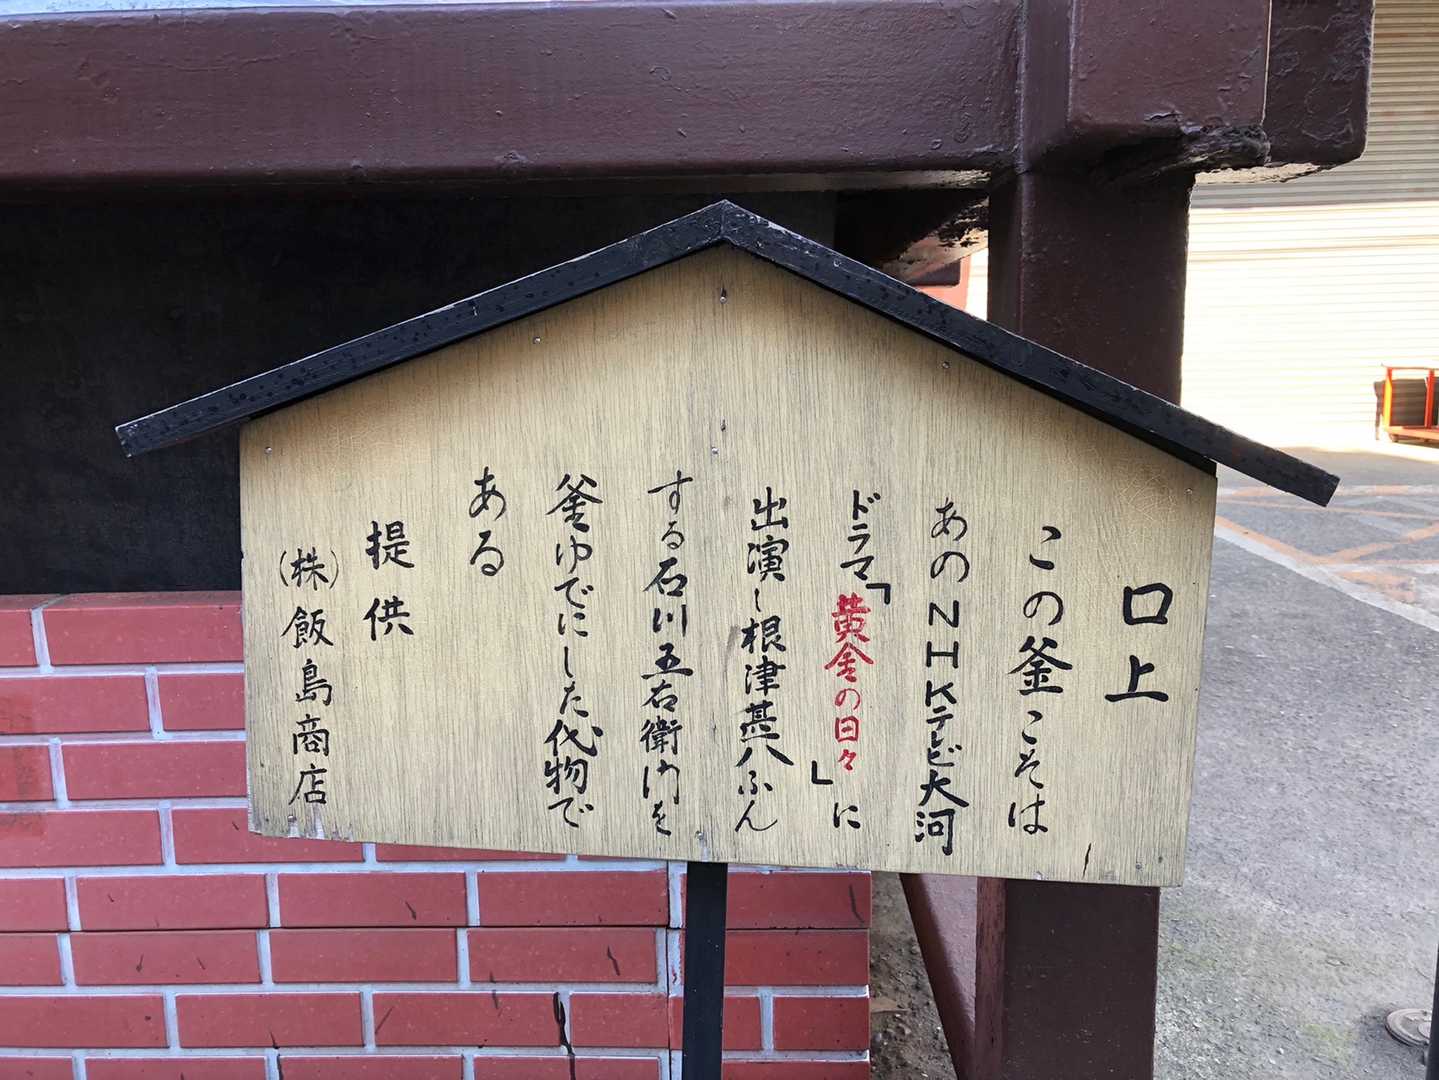 口上
この釜こそは
あのNHKテレビ大河
ドラマ「黄金の日々」に
出演し根津甚八ふん
する石川五右衛門を
釜ゆでにした代物で
ある
提供
(株)飯島商店